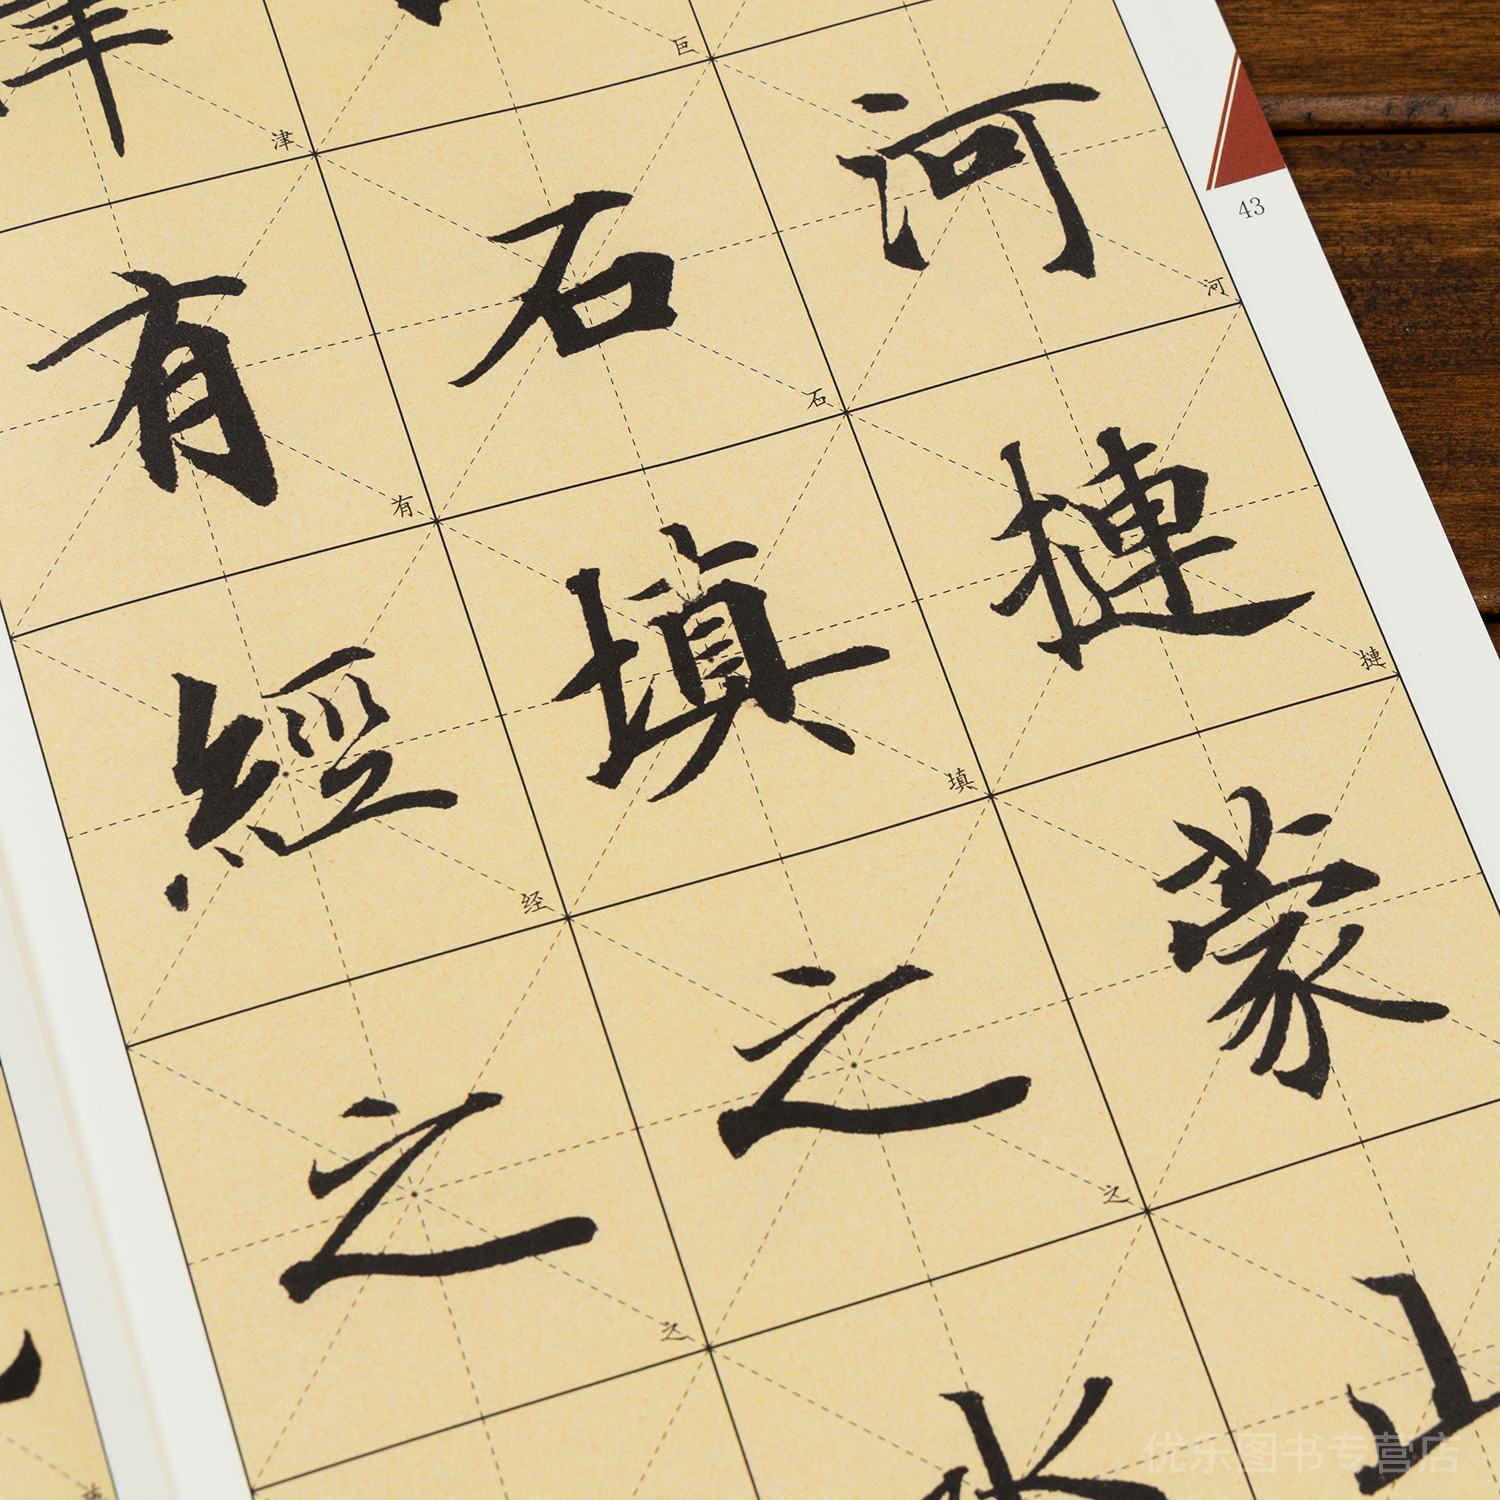 河摙蒙山
石填之
津有經之
河
摙
巨
石
填
之
津
有
经
之
43
优乐图书专营店